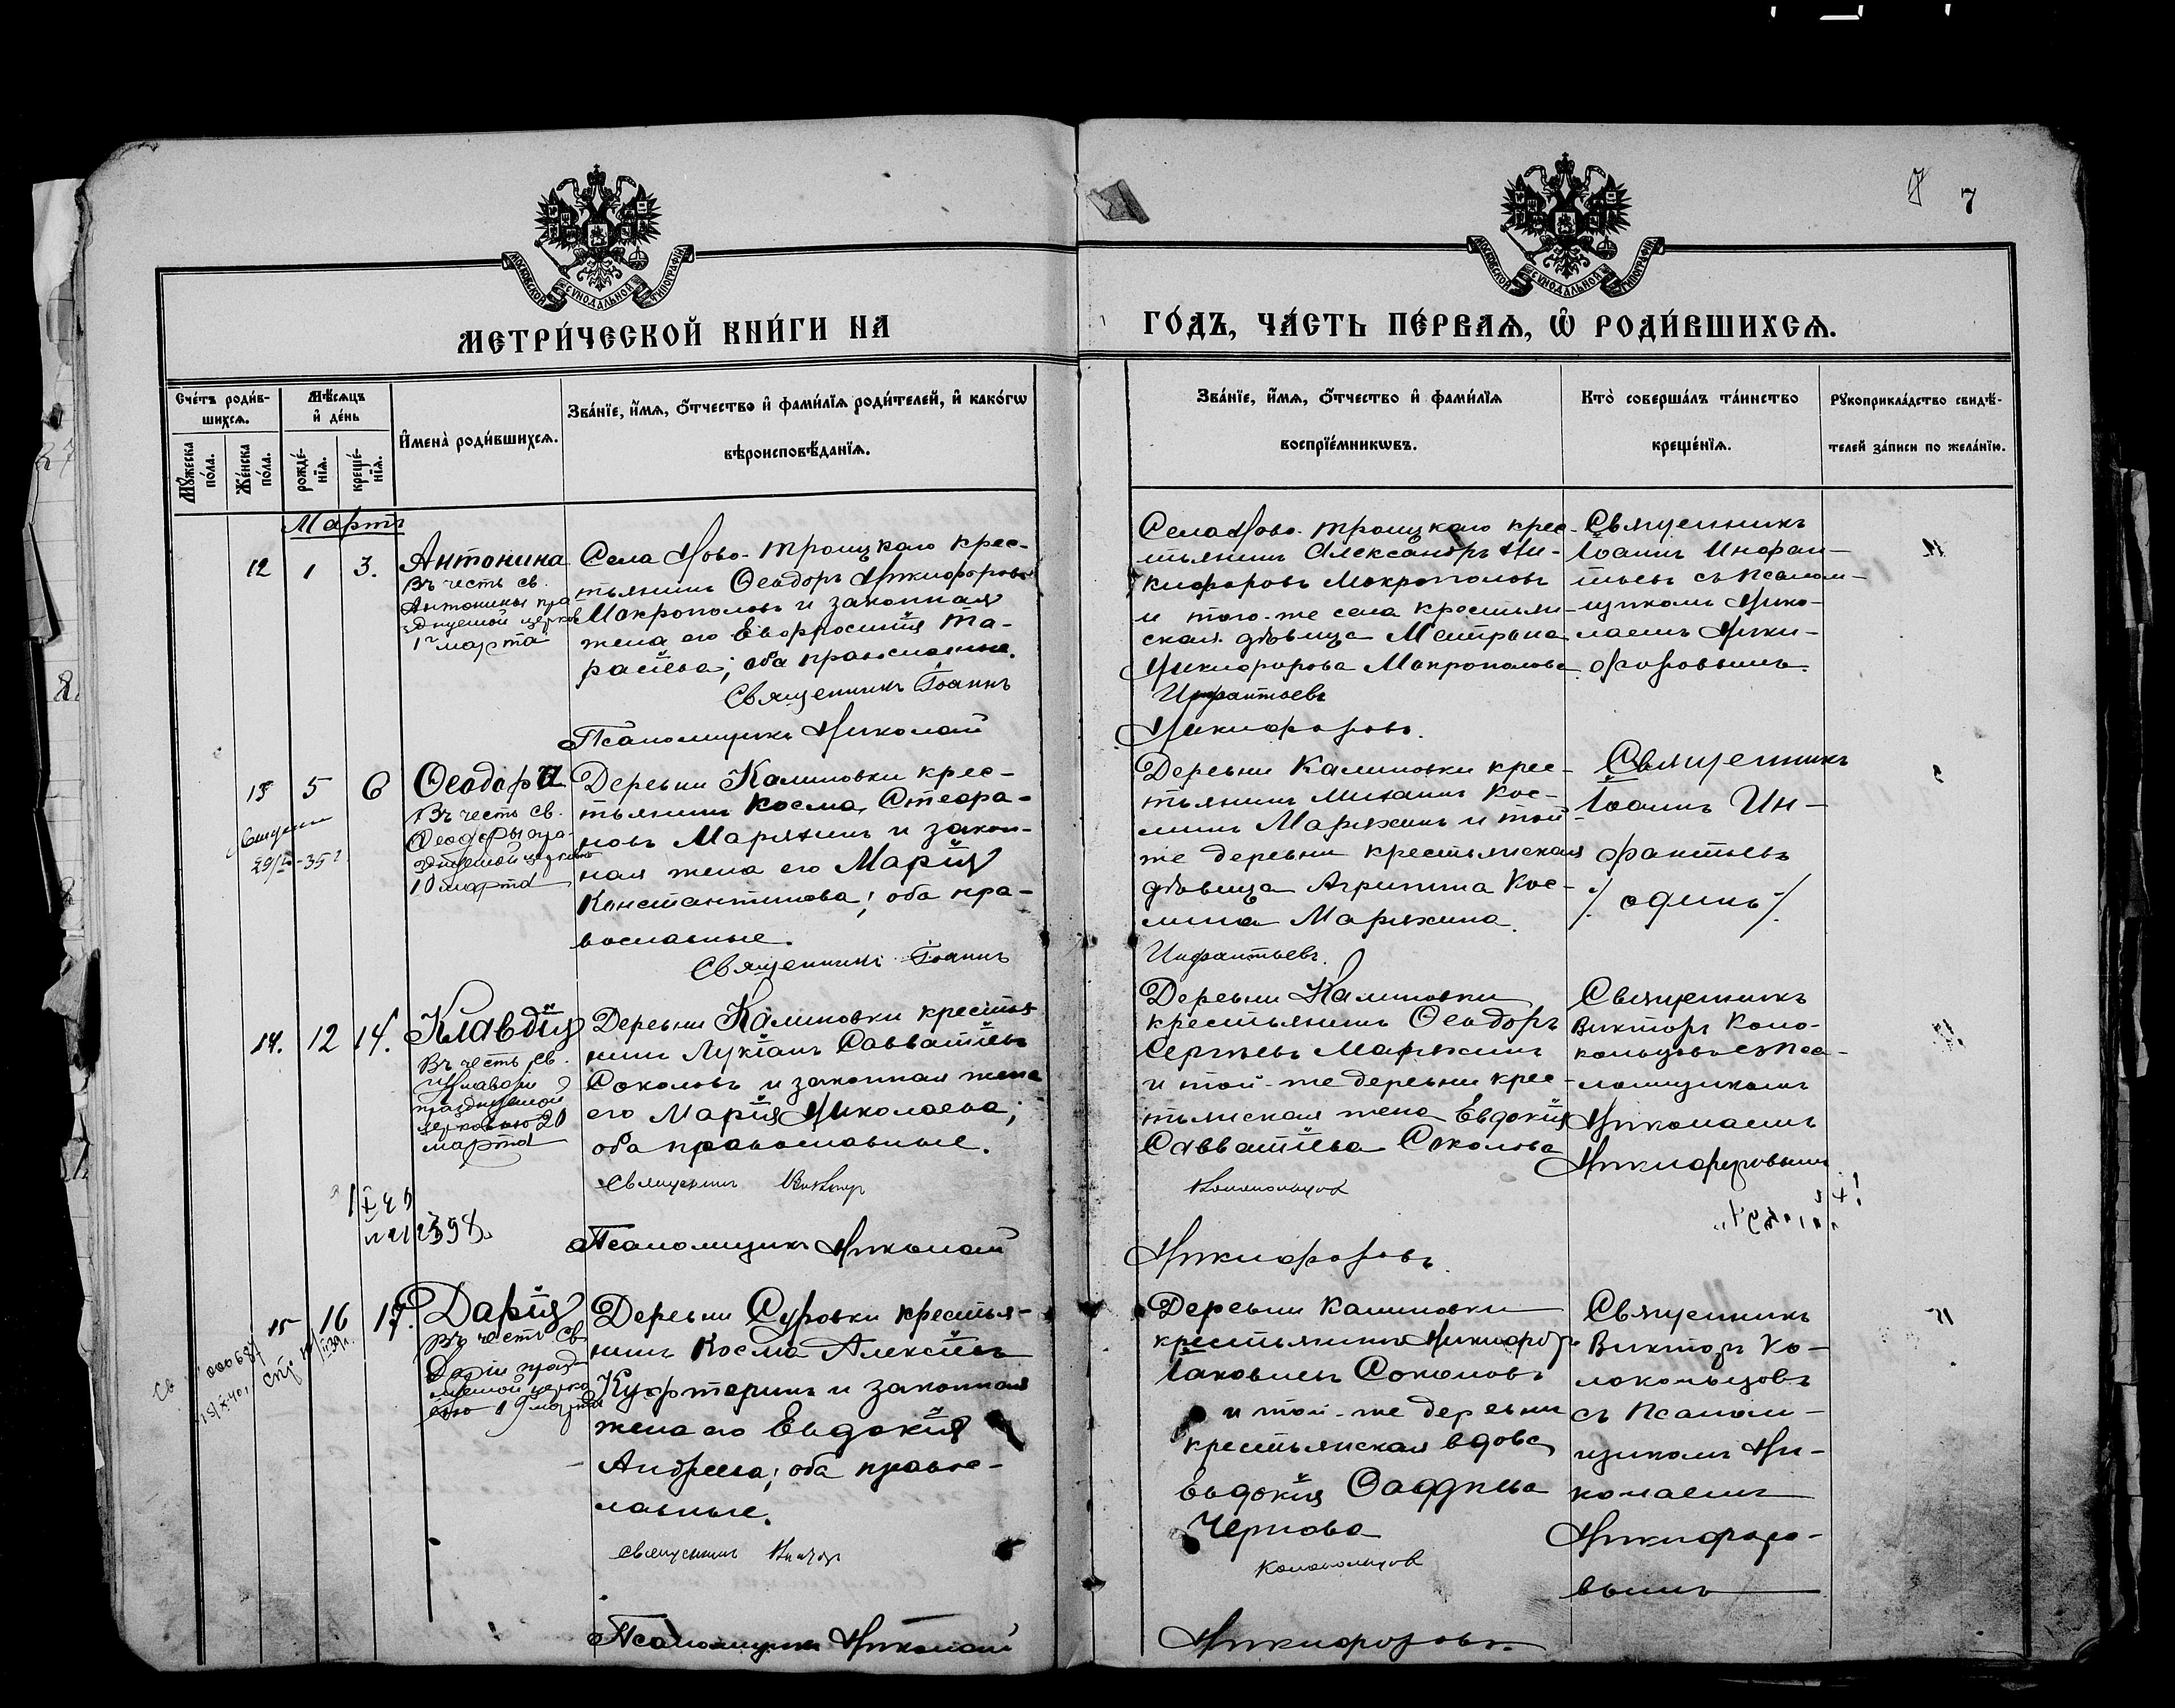 7
МОСКОВСКОЙ СѴНОДАЛЬНОЙ ТИПОГРАФІИ
МОСКОВСКОЙ СѴНОДАЛЬНОЙ ТИПОГРАФІИ
МЕТРИ́ЧЕСКОЙ КНИ́ГИ НА
ГО́ДЪ, ЧА́СТЬ ПЕ́РВАѦ, Ѽ РОДИ́ВШИХСѦ.
Сче́тъ роди́в-
шихсѧ.
Мꙋ́жеска по́ла.
Же́нска по́ла.
Мѣ́сѧцъ
и҆ де́нь
рожде́-
нїѧ.
креще́-
нїѧ.
И҆мена̀ роди́вшихсѧ.
Зва́нїе, и҆́мѧ, ѻ҆́тчество и҆ фами́лїѧ роди́телей, и҆ како́гѡ
вѣроисповѣ́данїѧ.
Зва́нїе, и҆́мѧ, ѻ҆́тчество и҆ фами́лїѧ
воспрїе́мникѡвъ.
Кто̀ соверша́лъ та́инство
креще́нїѧ.
Рꙋкоприкла́дство свидѣ́-
телей за́писи по жела́нїю.
Мартъ
12
1
3.
Антонина
Въ честь св.
Антонины пра-
зднуемой церко
1го марта
Села Ново-Троицкаго крес-
тьянинъ Ѳеодоръ Никифоровъ
Мокрополовъ и законная
жена его Евфросинія Та-
расіева; оба православные.
Священникъ Іоаннъ
Псаломщикъ Николай
Села Ново-Троицкаго крес-
тьянинъ Александръ Ни-
кифоровъ Мокрополовъ
и того-же села крестьян-
ская дѣвица Матрона
Никифорова Мокрополова.
Инфантьевъ
Никифоровъ.
Священникъ
Іоаннъ Инфан-
тьевъ съ псалом-
щикомъ Нико-
лаемъ Ники-
форовымъ.
13
5
6
Ѳеодора
Въ честь св.
Ѳеодоры пра-
зднуемой церковью
10 марта
Деревни Калиновки крес-
тьянинъ Косма Стефа-
новъ Маряхинъ и закон-
ная жена его Марія
Константинова; оба пра-
вославные.
Священникъ Іоаннъ
Деревни Калиновки крес-
тьянинъ Михаилъ Кос-
минъ Маряхинъ и той-
же деревни крестьянская
дѣвица Агриппина Кос-
мина Маряхина.
Инфантьевъ.
Священникъ
Іоаннъ Ин-
фантьевъ
/. одинъ ./
14.
12
14.
Клавдія
Въ честь св.
Клавдіи
празднуемой
церковью 20
марта
Деревни Калиновки крестья-
нинъ Лукіанъ Савватіевъ
Соколовъ и законная жена
его Марія Николаева;
оба православные.
Священникъ Викторъ
Псаломщикъ Николай
Деревни Калиновки
крестьянинъ Ѳеодоръ
Сергѣевъ Маряхинъ
и той-же деревни крес-
тьянская жена Евдокія
Савватіева Соколова
Колокольцовъ
Никифоровъ.
Священникъ
Викторъ Коло-
кольцовъ съ пса-
ломщикомъ
Николаемъ
Никифоровымъ
15
16
17.
Дарія
Въ честь Св.
Даріи празд-
нуемой церко
вью 19 марта
Деревни Суровки крестья-
нинъ Косма Алексіевъ
Куфтеринъ и законная
жена его Евдокія
Андреева; оба правос-
лавные.
Священникъ Викторъ
Псаломщикъ Николай
Деревни Калиновки
крестьянинъ Никифоръ
Іаковлевъ Соколовъ
и той-же деревни
крестьянская вдова
Евдокія Ѳаддеева
Чернова
Колокольцовъ
Никифоровъ.
Священникъ
Викторъ Ко-
локольцовъ
съ псалом-
щикомъ Ни-
колаемъ
Никифоро-
вымъ